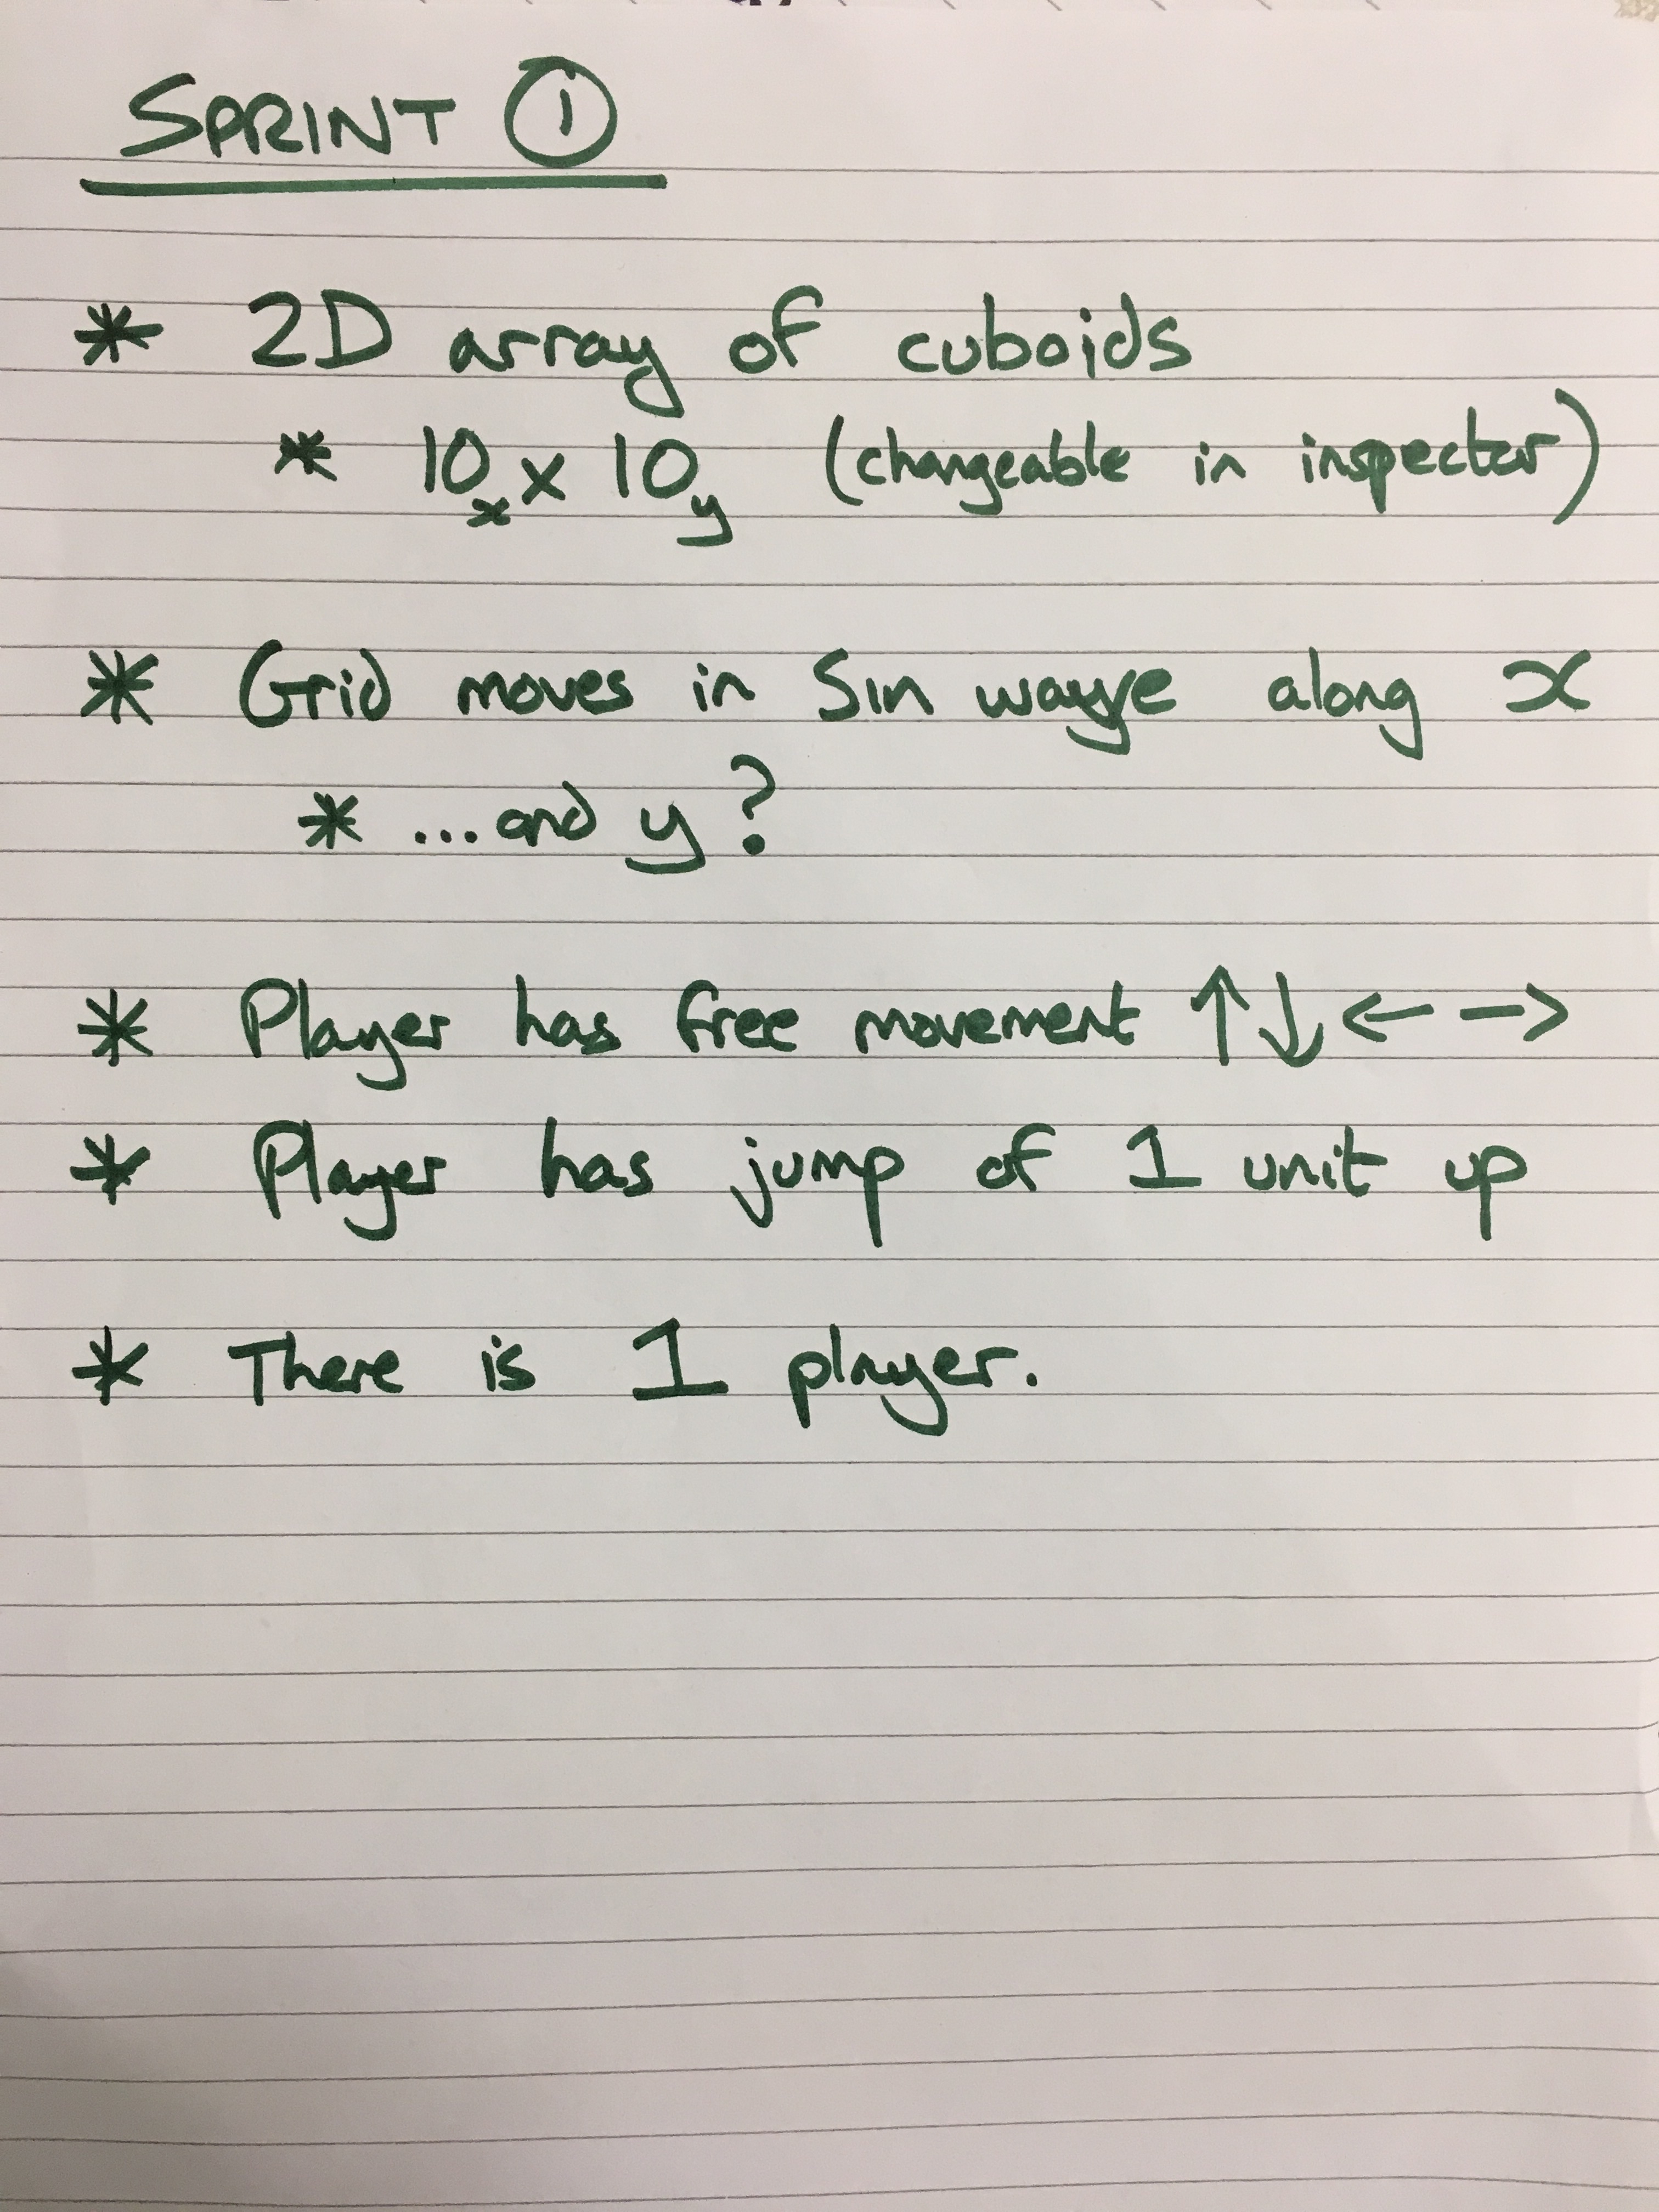 SPRINT ①
* 2D array of cuboids
* 10x x 10y (changeable in inspector)
* Grid moves in Sin wave along x
* ... and y?
* Player has free movement ↑↓←→
* Player has jump of 1 unit up
* There is 1 player.